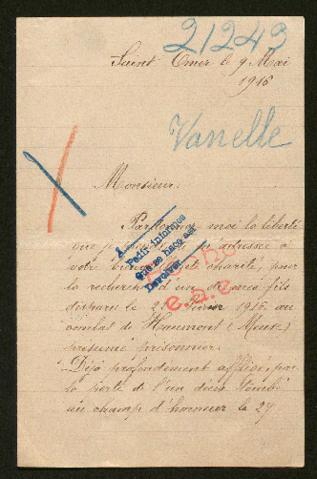 21243
Saint Omer le 9 Mai
1916
Vanelle
Monsieur.
Pardonnez moi la liberté
que je adresse à
votre charité, pour
la recherche d'un de mes fils
disparu le 21 février 1916. au
combat de Haumont (Meuse)
présumé prisonnier.
Déjà profondément affligé, par
la perte de l'un deux tombé
au champ d'honneur le 27